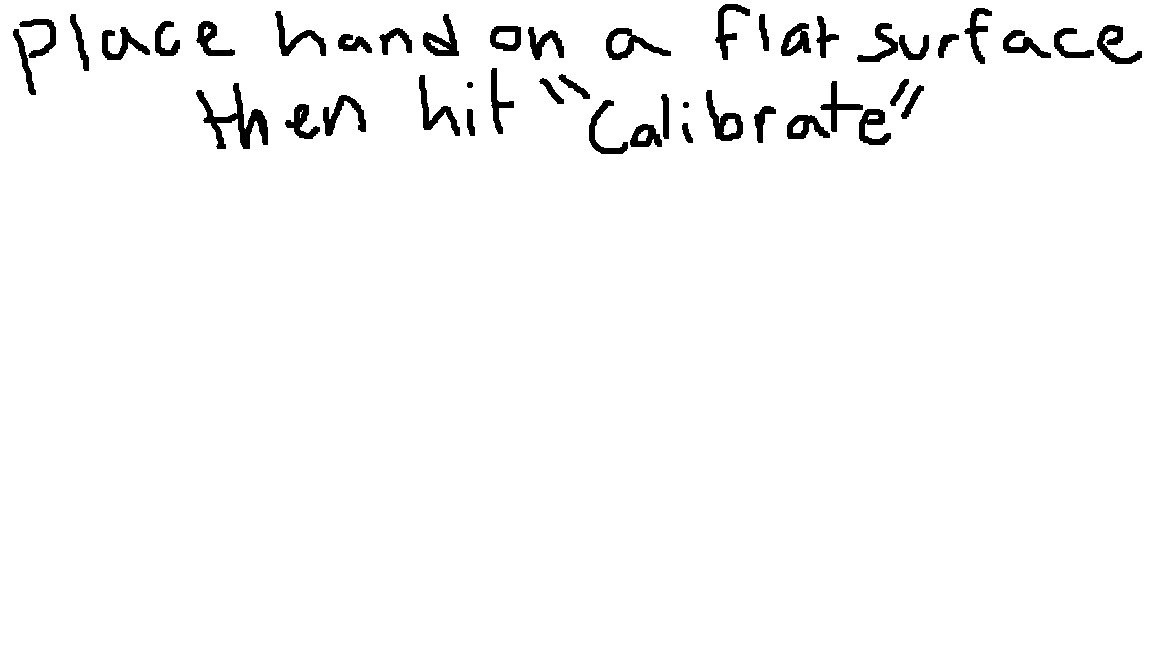 place hand on a flat surface
then hit "Calibrate"